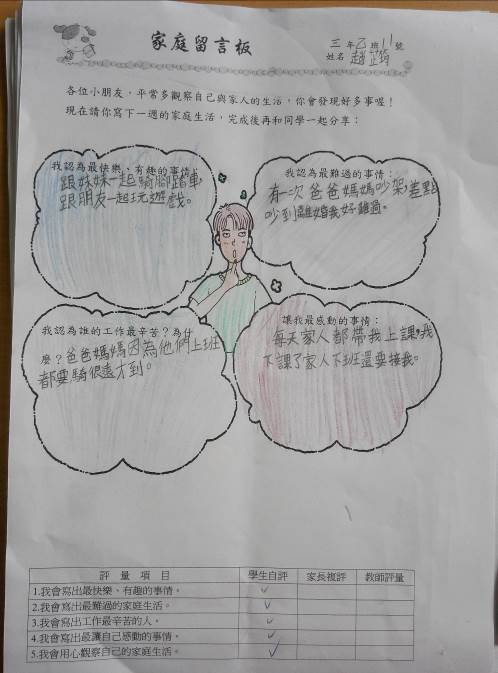 家庭留言板
三年乙班11號
姓名 趙芷筠
各位小朋友，平常多觀察自己與家人的生活，你會發現好多事喔！
現在請你寫下一週的家庭生活，完成後再和同學一起分享：
我認為最快樂、有趣的事情：
跟妹妹一起騎腳踏車
跟朋友一起玩遊戲。
我認為最難過的事情：
有一次爸爸媽媽吵架差點
吵到離婚我好難過。
我認為誰的工作最辛苦？為什
麼？爸爸媽媽因為他們上班
都要騎很遠才到。
讓我最感動的事情：
每天家人都帶我上課，我
下課了家人下班還要接我。
評量項目 學生自評 家長複評 教師評量
1.我會寫出最快樂、有趣的事情。
2.我會寫出最難過的家庭生活。
3.我會寫出工作最辛苦的人。
4.我會寫出最讓自己感動的事情。
5.我會用心觀察自己的家庭生活。